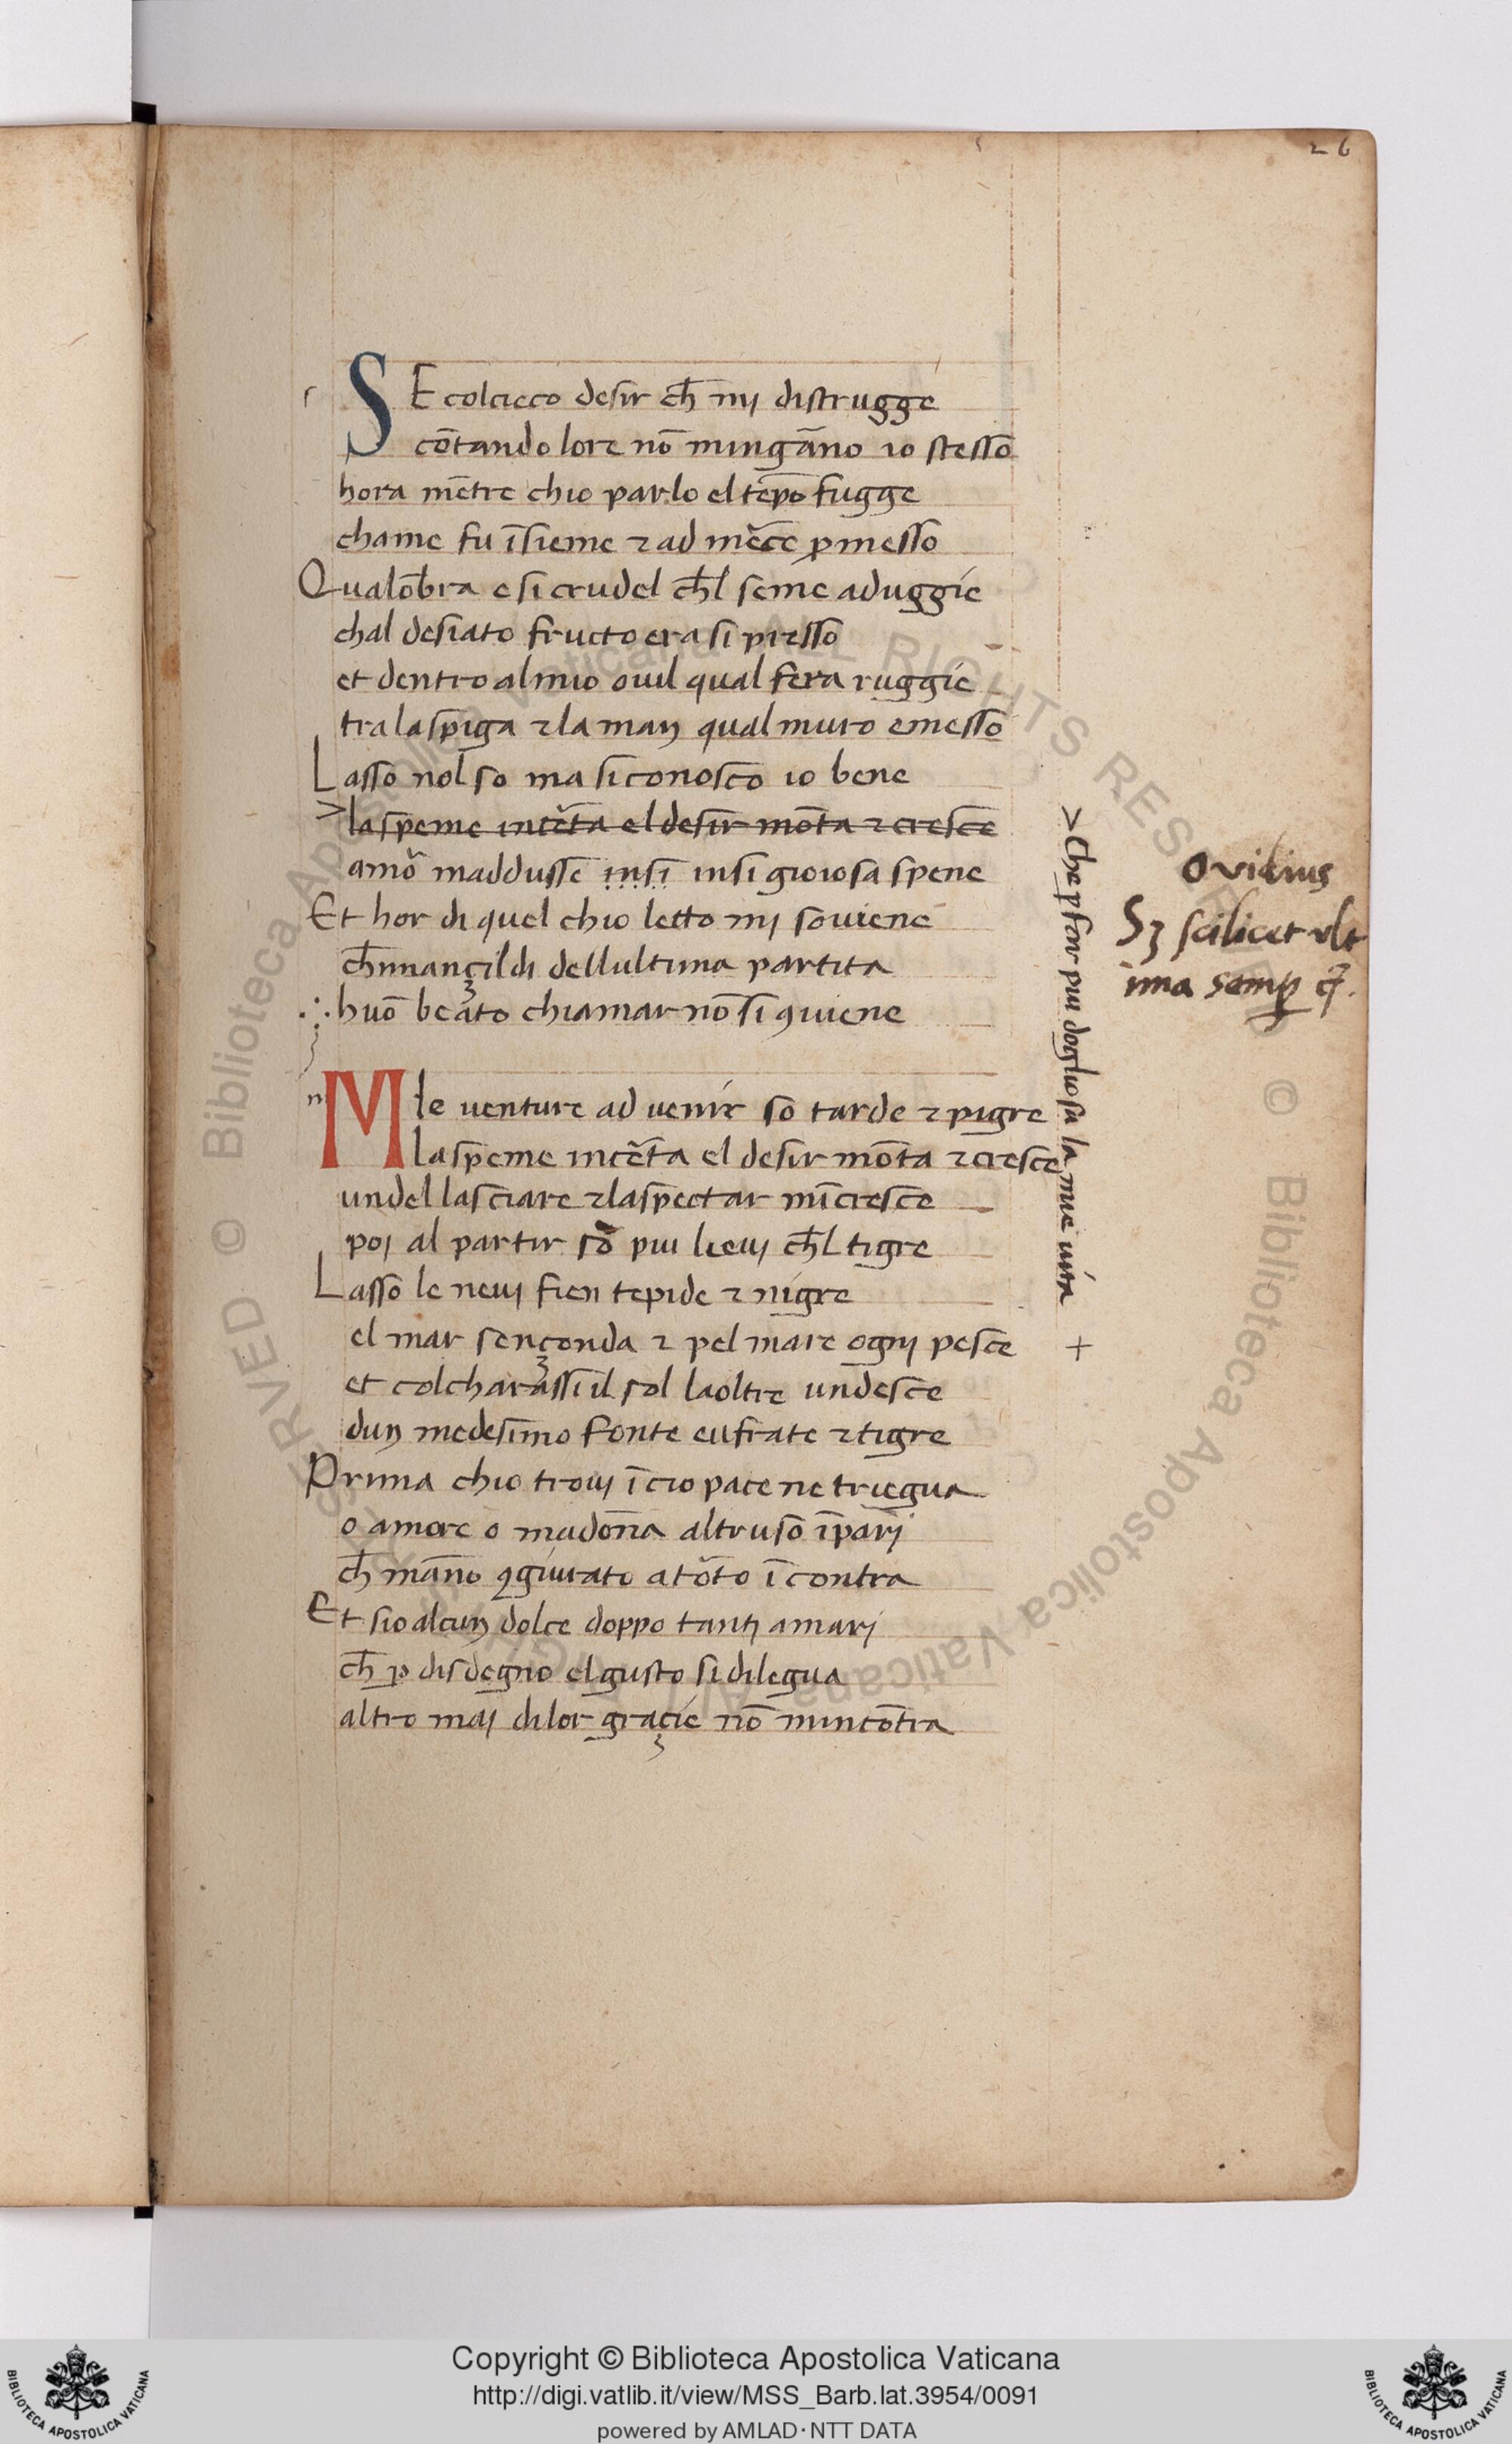 26
SE colcieco desir ch̄ mj distrugge
cōtando lore nō mingāno io stesso
hora mētre chio parlo el tēpo fugge
chame fu īsieme ⁊ ad mẽce ꝓmesso
Qualōbra e si crudel ch̄l seme aduggie
chal desiato fructo era si presso
et dentro al mio ouil qual fera ruggie
tra la spiga ⁊ la man qual muro e messo
Lasso nol so ma si conosco io bene
>la speme incẽta el desir mōta ⁊ cresce
amõ maddusse insi insi gioiosa spene
Et hor di quel chio letto mj souiene
ch̄nnançil di dellultima partita
huō beato chiamar nō si ꝯuiene
>Che ꝑ far piu dogliosa la mie uita
Ovidius
Sꝫ scilicet vlt
ima semꝑ
Mle venture ad venir so tarde ⁊ pigre
la speme incẽta el desir mōta ⁊ cresce
undel lasciare ⁊ laspectar mīcresce
poj al partir sō piu lieuj ch̄l tigre
Lasso le neuj fien tepide ⁊ nigre
el mar sençonda ⁊ pel mare ognj pesce +
et colcharassi il sol laoltre undesce
dun medesimo fonte eufrate ⁊ tigre
Prima chio trouj ī cio pace ne triegua
o amore o madōna altruso īparj
ch̄ māno ꝯgiurato a tõto ī contra
Et sio alcun dolce doppo tantj amarj
ch̄ ꝑ disdegno el gusto si dilegua
altro maj di lor graçie nō mincōtra
Copyright © Biblioteca Apostolica Vaticana
http://digi.vatlib.it/view/MSS_Barb.lat.3954/0091
powered by AMLAD·NTT DATA
BIBLIOTECA APOSTOLICA VATICANA
BIBLIOTECA APOSTOLICA VATICANA